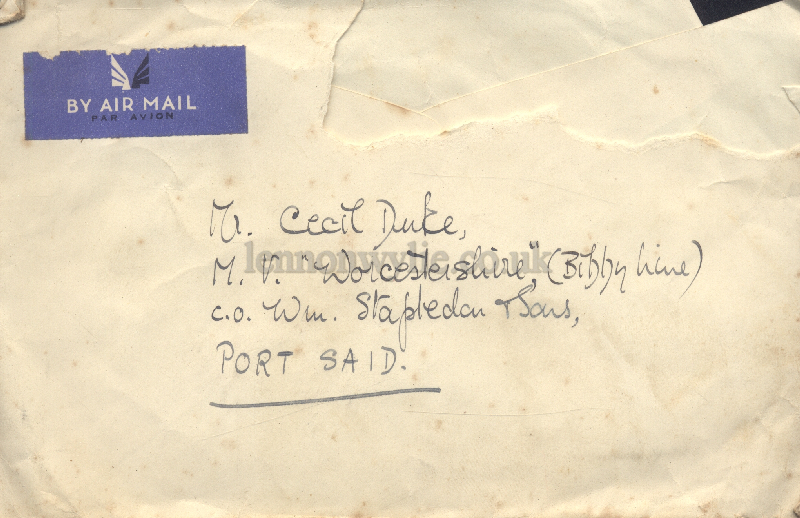 BY AIR MAIL
PAR AVION
Mr. Cecil Duke,
M.V. "Worcestershire", (Bibby Line)
lennonwylie.co.uk
c.o. Wm. Stapledon & Sons,
PORT SAID.